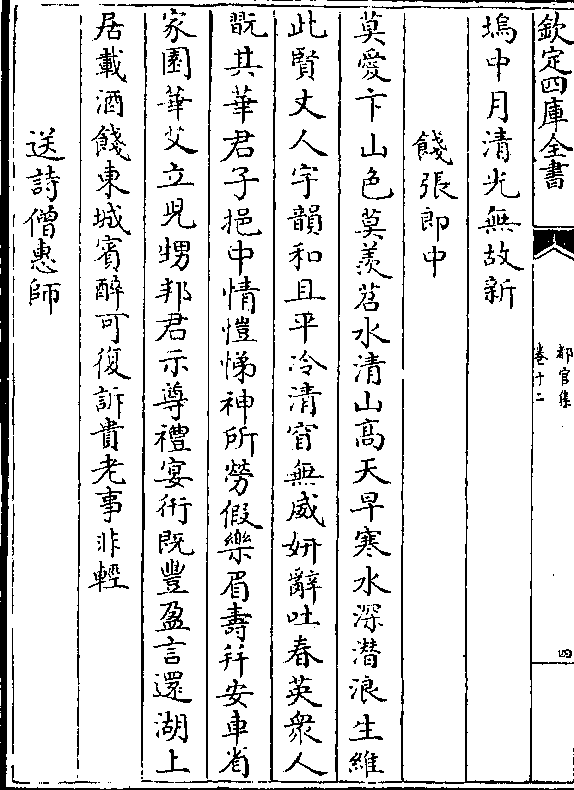 欽定四庫全書
都官集
卷十二
四
塢中月清光無故新
餞張郎中
莫愛卞山色莫羨苕水清山高天早寒水深潜浪生維
此賢丈人宇韻和且平冷清窅無威妍辭吐春英衆人
翫其華君子挹中情愷悌神所勞假樂眉壽并安車省
家園華艾立兒甥邦君示尊禮宴衎既豐盈言還湖上
居載酒餞東城賓醉可復訴貴老事非輕
送詩僧惠師